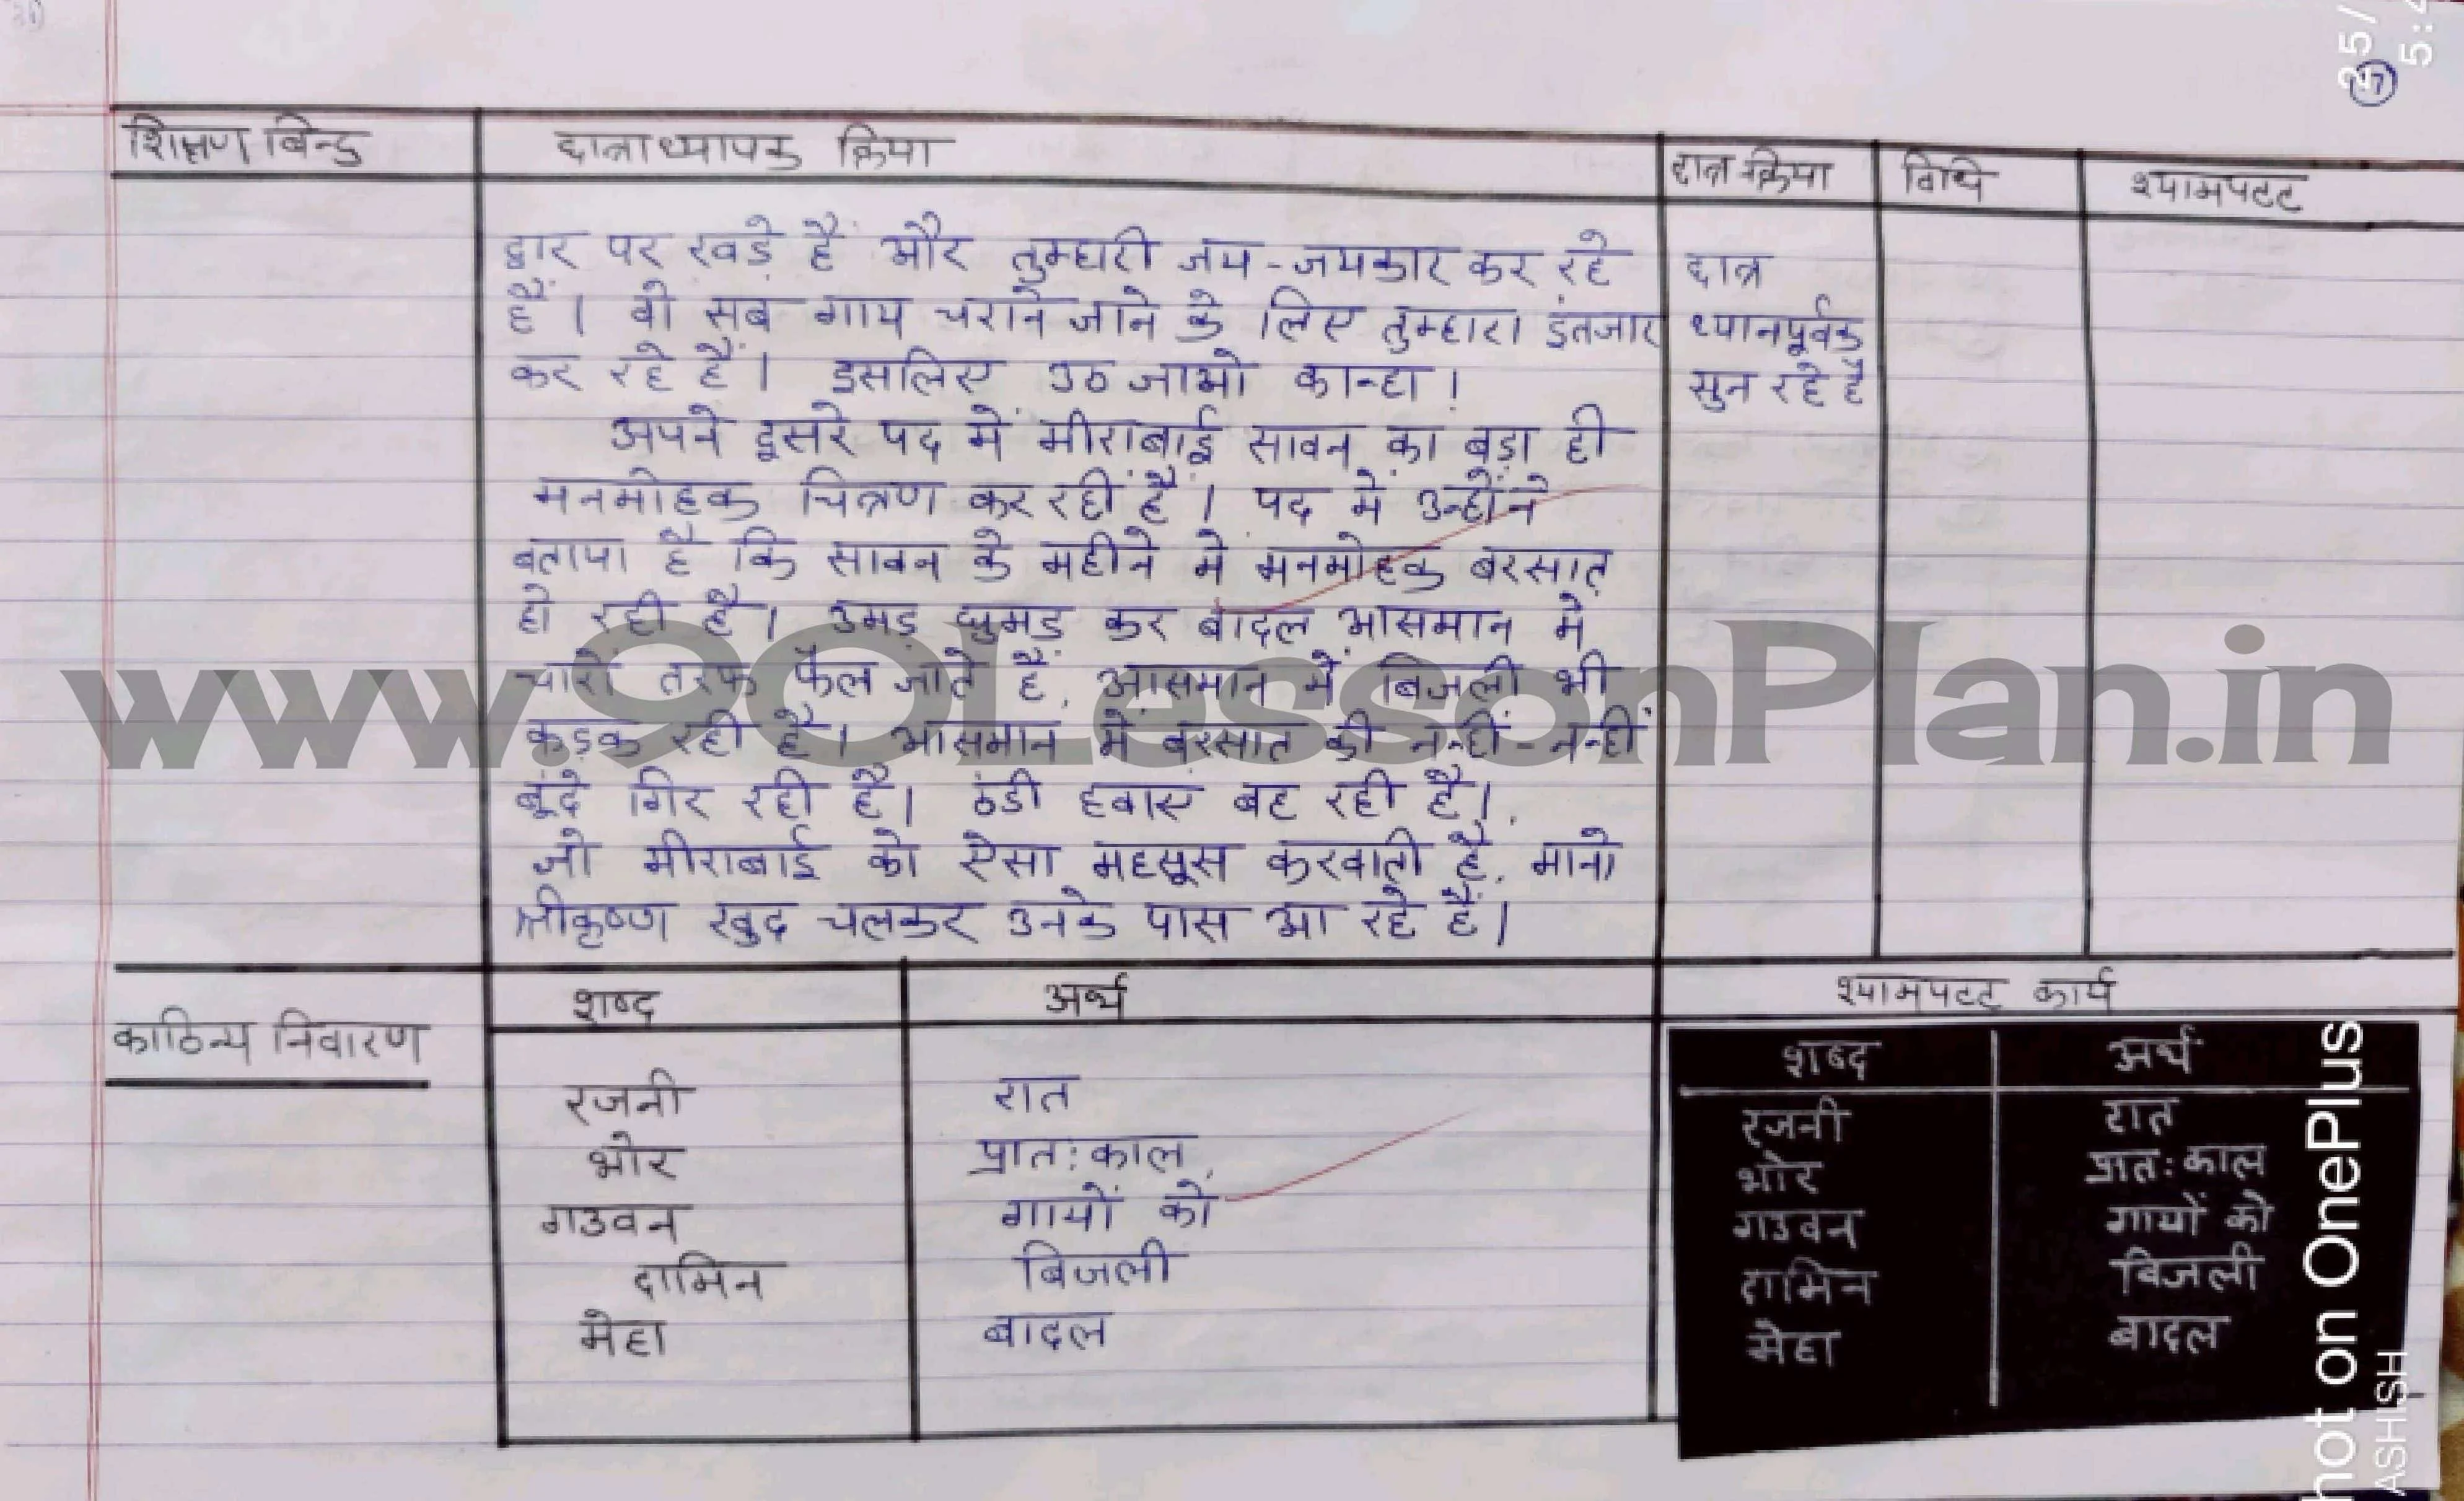 शिक्षण बिन्दु छात्राध्यापक क्रिया छात्र क्रिया विधि श्यामपटट
द्वार पर खड़े हैं और तुम्हारी जय-जयकार कर रहे
हैं। वो सब गाय चराने जाने के लिए तुम्हारा इंतजार
कर रहे हैं। इसलिए उठ जाओ कान्हा।
छात्र
ध्यानपूर्वक
सुन रहे है
अपने दूसरे पद में मीराबाई सावन का बड़ा ही
मनमोहक चित्रण कर रहीं हैं। पद में उन्होंने
बताया है कि सावन के महीने मे मनमोहक बरसात
हो रही है। उमड़ घुमड़ कर बादल आसमान में
चारों तरफ फैल जाते हैं, आसमान में बिजली भी
कड़क रही है। आसमान में बरसात की नन्हीं-नन्हीं
बूंदे गिर रही है। ठंडी हवाएं बह रही है।,
जो मीराबाई को ऐसा महसूस करवाती है, मानो
श्रीकृष्ण खुद चलकर उनके पास आ रहे हैं।
काठिन्य निवारण
शब्द अर्थ
रजनी रात
भोर प्रात:काल
गउवन गायों को
दामिन बिजली
मेहा बादल
श्यामपटट कार्य
शब्द अर्थ
रजनी रात
भोर प्रात:काल
गउवन गायों को
दामिन बिजली
मेहा बादल
www.90LessonPlan.in
not on OnePlus
ASHISH
25/
5:4
7